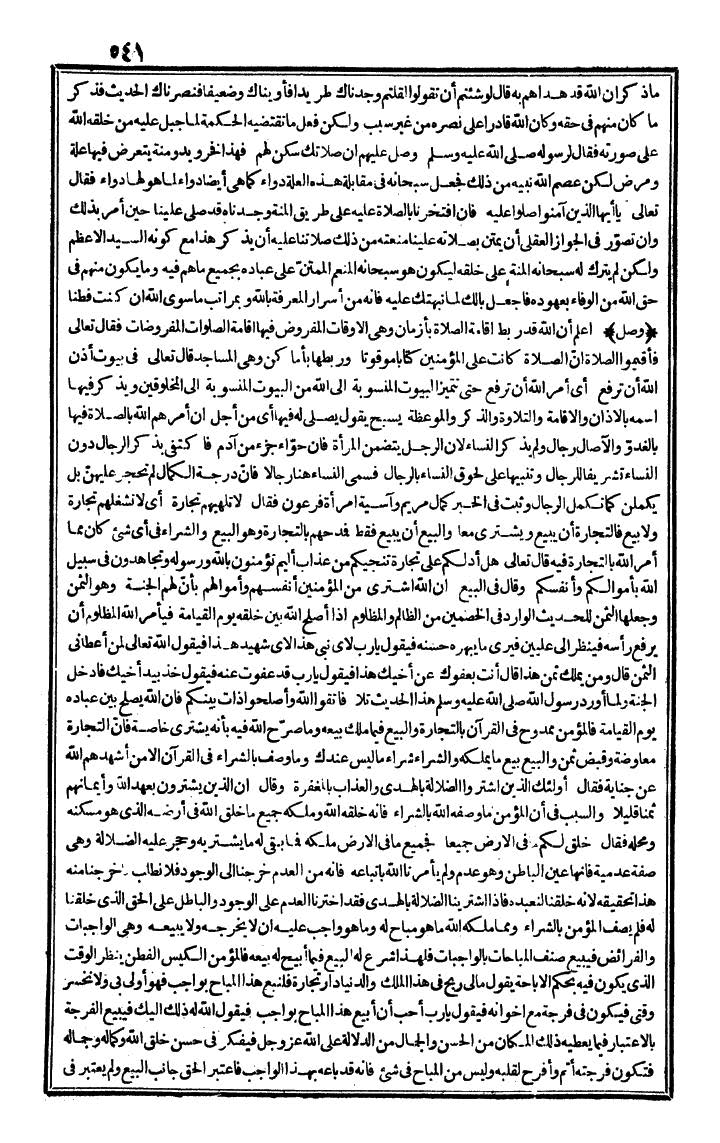 ٥٤١
ماذكران الله قد هداهم به قال لوشئتم أن تقولوا لقلتم وجدناك طريدا فأويناك وضعيفا فنصرناك الحديث فذكر
ما كان منهم فى حقه وكان الله قادرا على نصره من غير سبب ولكن فعل ما تقتضيه الحكمة لما جبل عليه من خلقه الله
على صورته فقال لرسوله صلى الله عليه وسلم وصل عليهم ان صلاتك سكن لهم فهذا نفر ويد ومنة يتعرض فيها علة
ومرض لكن عصم الله نبيه من ذلك فجعل سبحانه فى مقابلة هذه العلة دواء كما هى أيضا دواء لما هو لها دواء فقال
تعالى ياأيها الذين آمنوا صلوا عليه فان افتخرنا بالصلاة عليه على طريق المنة وجدناه قد صلى علينا حين أمر بذلك
وان تصوّر فى الجواز العقلى أن يمتن بصلاته علينا منعته من ذلك صلاتنا عليه أن يذكر هذا مع كونه السيد الاعظم
ولكن لم يترك له سبحانه المنة على خلقه ليكون هو سبحانه المنعم الممتنّ على عباده بجميع ماهم فيه وما يكون منهم فى
حق الله من الوفاء بعهوده فاجعل بالك لما نبهتك عليه فانه من أسرار المعرفة بالله وبمراتب ماسوى الله ان كنت فطنا
﴿وصل﴾ اعلم أن الله قد ربط اقامة الصلاة بأزمان وهى الاوقات المفروض فيها اقامة الصلوات المفروضات فقال تعالى
فأقيموا الصلاة انّ الصلاة كانت على المؤمنين كتابا موقوتا وربطها بأماكن وهى المساجد قال تعالى فى بيوت أذن
الله أن ترفع أى أمر الله أن ترفع حتى تتميز البيوت المنسوبة الى الله من البيوت المنسوبة الى المخلوقين ويذكر فيها
اسمه بالاذان والاقامة والتلاوة والذكر والموعظة يسبح يقول يصلى له فيها أى من أجل ان أمرهم الله بالصلاة فيها
بالغدوّ والآصال رجال ولم يذكر النساء لان الرجل يتضمن المرأة فان حوّاء جزء من آدم فاكتفى بذكر الرجال دون
النساء تشريفا للرجال وتنبيها على لحوق النساء بالرجال فسمى النساء هنا رجالا فانّ درجة الكمال لم تحجر عليهنّ بل
يكملن كما تكمل الرجال وثبت فى الخبر كمال مريم وآسية امرأة فرعون فقال لا تلهيهم تجارة أى لا تشغلهم تجارة
ولا بيع فالتجارة أن يبيع ويشترى معا والبيع أن يبيع فقط فمدحهم بالتجارة وهو البيع والشراء فى أى شئ كان مما
أمر الله بالتجارة فيه قال تعالى هل أدلكم على تجارة تنجيكم من عذاب أليم تؤمنون بالله ورسوله وتجاهدون فى سبيل
الله بأموالكم وأنفسكم وقال فى البيع ان الله اشترى من المؤمنين أنفسهم وأموالهم بأنّ لهم الجنة وهو الثمن
وجعلها الثمن للحديث الوارد فى الخصمين من الظالم والمظلوم اذا أصلح الله بين خلقه يوم القيامة فيأمر الله المظلوم أن
يرفع رأسه فينظر الى عليين فيرى ما يبهره حسنه فيقول يارب لاى نبى هذا لاى شهيد هذا فيقول الله تعالى لمن أعطانى
الثمن قال ومن يملك ثمن هذا قال أنت بعفوك عن أخيك هذا فيقول يارب قد عفوت عنه فيقول خذ بيد أخيك فادخل
الجنة ولما أورد رسول الله صلى الله عليه وسلم هذا الحديث تلا فاتقوا الله وأصلحوا ذات بينكم فان الله يصلح بين عباده
يوم القيامة فالمؤمن ممدوح فى القرآن بالتجارة والبيع فيما ملك بيعه وما صرّح الله فيه بأنه يشترى خاصة فانّ التجارة
معاوضة وقبض ثمن والبيع بيع ما يملكه والشراء شراء ما ليس عندك وما وصف بالشراء فى القرآن الا من أشهدهم الله
عن جناية فقال أولئك الذين اشتروا الضلالة بالهدى والعذاب بالمغفرة وقال ان الذين يشترون بعهد الله وأيمانهم
ثمنا قليلا والسبب فى أن المؤمن ما وصفه الله بالشراء فانه خلقه الله وملكه جميع ما خلق الله فى أرضه الذى هو مسكنه
ومحله فقال خلق لكم ما فى الارض جميعا فجميع ما فى الارض ملكه فما بقى له ما يشتريه وحجر عليه الضلالة وهى
صفة عدمية فانها عين الباطن وهو عدم ولم يأمرنا الله باتباعه فانه من العدم خرجنا الى الوجود فلا نطلب ما خرجنا منه
هذا تحقيقه لانه خلقنا لنعبده فاذا اشترينا الضلالة بالهدى فقد اخترنا العدم على الوجود والباطل على الحق الذى خلقنا
له فلم يصف المؤمن بالشراء ومما ملكه الله ما هو مباح له وما هو واجب عليه ان لا يخرجه ولا يبيعه وهى الواجبات
والفرائض فيبيع صنف المباحات بالواجبات فلهذا شرع له البيع فيما أبيح له بيعه فالمؤمن الكيس الفطن ينظر الوقت
الذى يكون فيه بحكم الاباحة يقول مالى ربح فى هذا الملك والدنيا دار تجارة فلنبع هذا المباح بواجب فهو أولى بى ولا نخسر
وقتى فيكون فى فرجة مع اخوانه فيقول يارب أحب أن أبيع هذا المباح بواجب فيقول الله له ذلك اليك فيبيع الفرجة
بالاعتبار فيما يعطيه ذلك المكان من الحسن والجمال من الدلالة على الله عز وجل فيفكر فى حسن خلق الله وكماله وجماله
فتكون فرجته أتم وأفرح لقلبه وليس من المباح فى شئ فانه قد باعه بهذا الواجب فاعتبر الحق جانب البيع ولم يعتبر فى